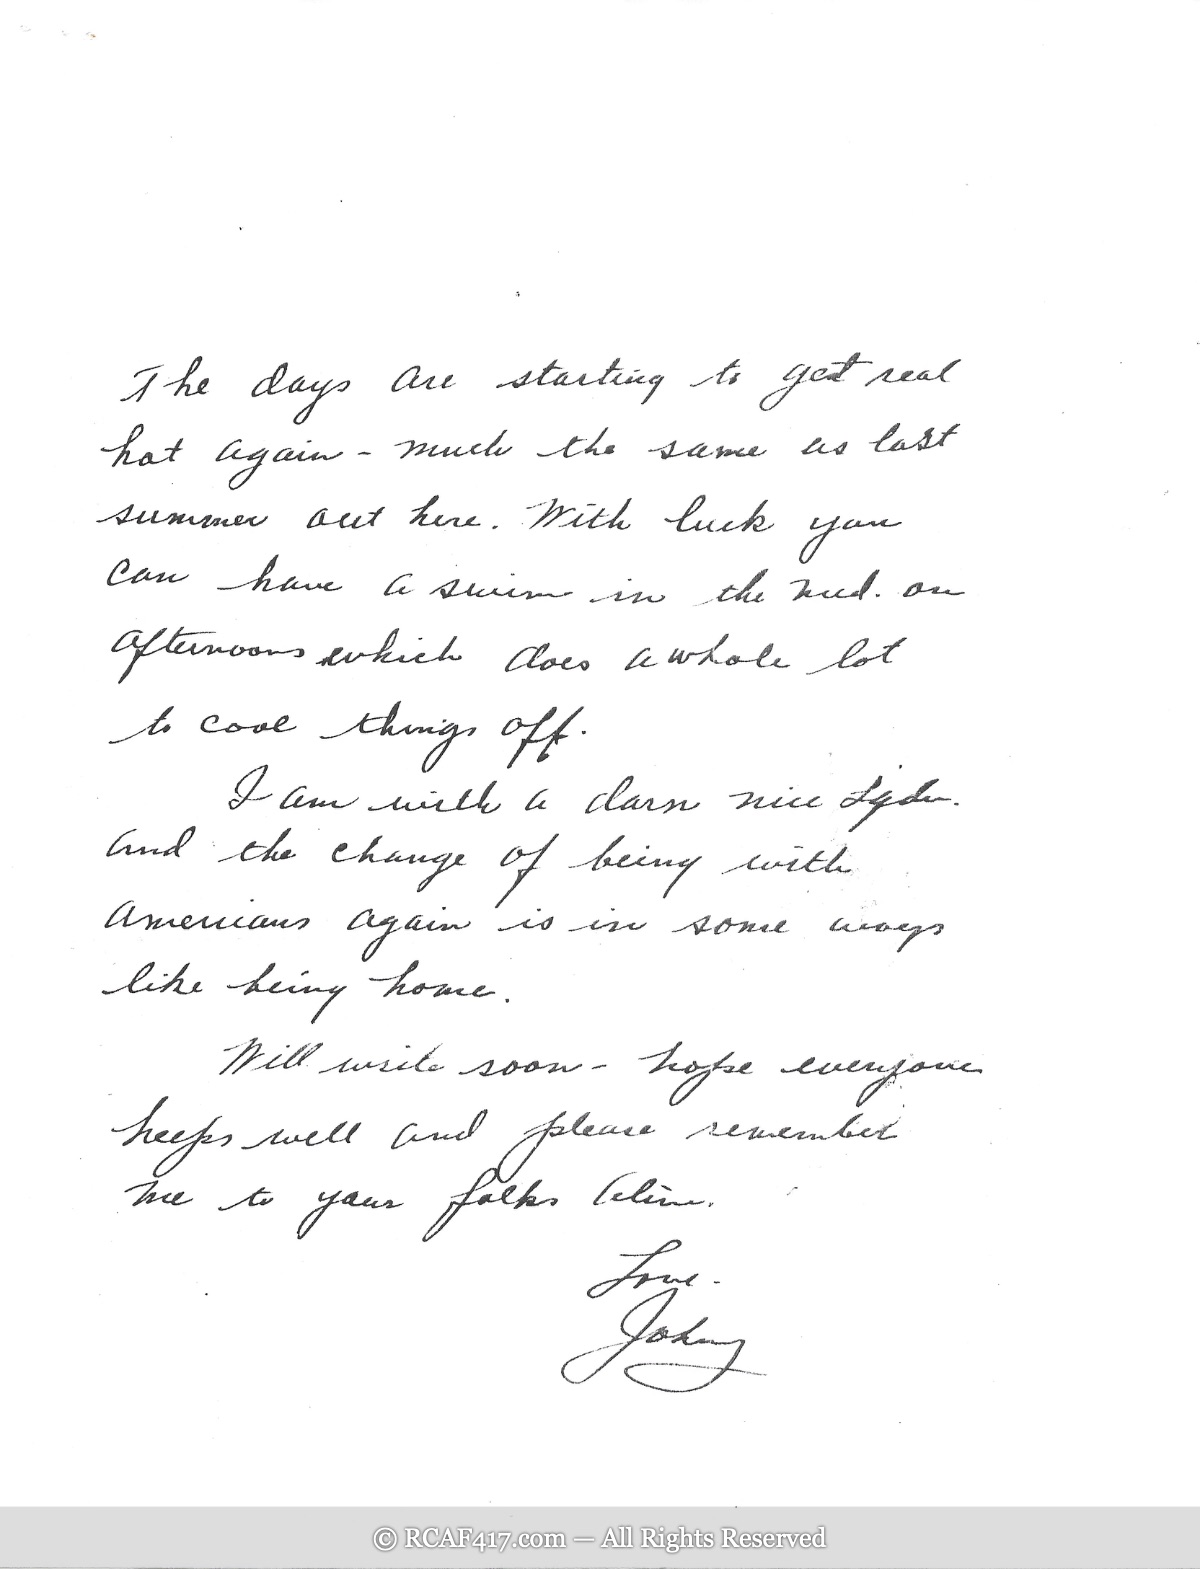 The days are starting to get real
hot again - much the same as last
summer out here. With luck you
can have a swim in the med. on
afternoons which does a whole lot
to cool things off.
I am with a darn nice Sqdn.
and the change of being with
Americans again is in some ways
like being home.
Will write soon - hope everyone
keeps well and please remember
me to your folks Aline.
Love -
Johnny
© RCAF417.com — All Rights Reserved